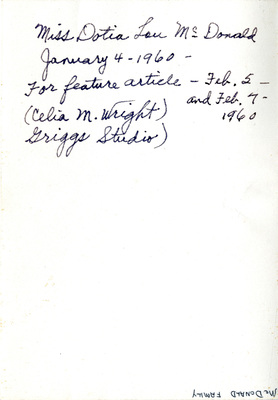 Miss Dotia Lou McDonald
January 4-1960 -
For feature article - Feb. 5 -
and Feb. 7-
1960
(Celia M. Wright)
Griggs Studio)
McDONALD FAMILY